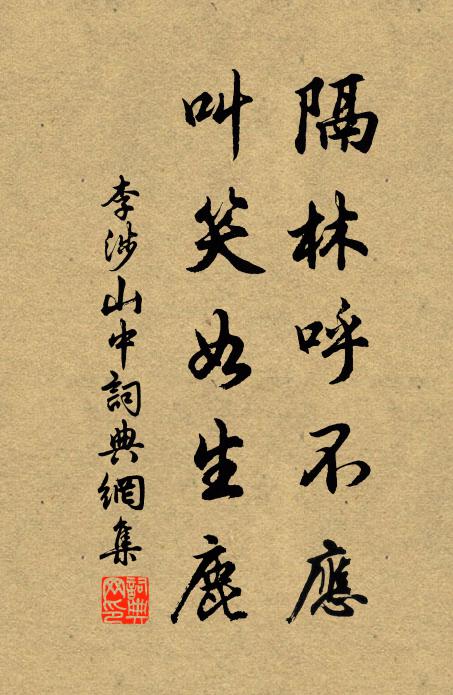 隔林呼不應
叫笑如生鹿
李涉山中詞典網集
詞典網印